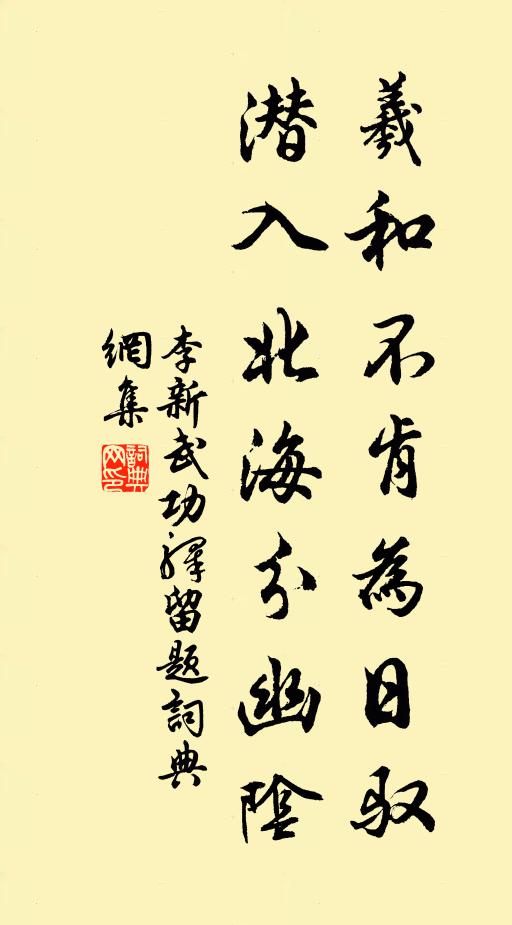 羲和不肯為日馭
潛入北海分幽陰
李新武功驛留題詞典
網集
詞典
网印